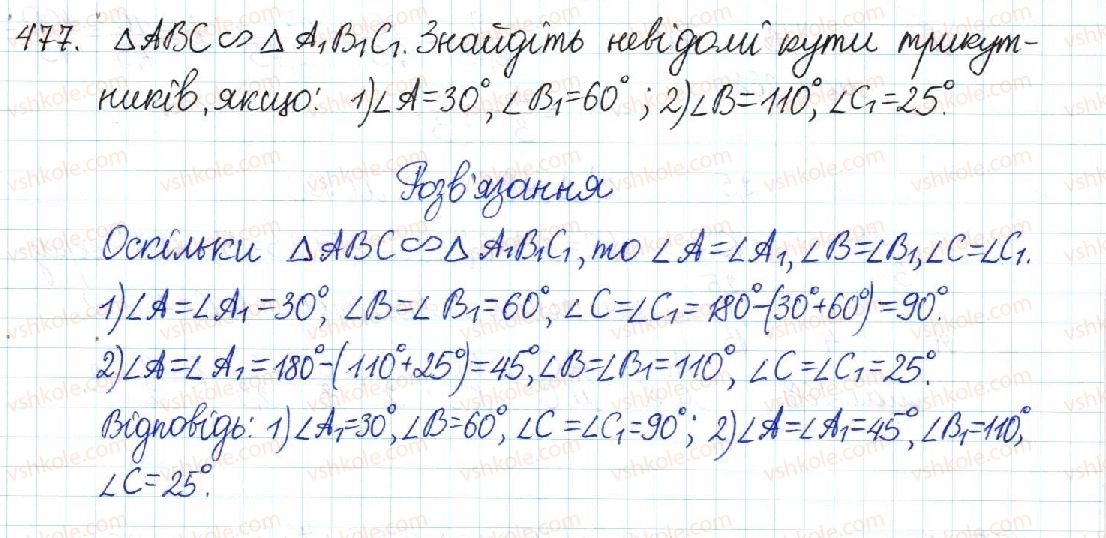 477. △ABC∽△A₁B₁C₁. Знайдіть невідомі кути трикут-
ників, якщо: 1)∠A=30°, ∠B₁=60°; 2)∠B=110°, ∠C₁=25°.
Розв'язання
Оскільки △ABC∽△A₁B₁C₁, то ∠A=∠A₁, ∠B=∠B₁, ∠C=∠C₁.
1)∠A=∠A₁=30°, ∠B=∠B₁=60°, ∠C=∠C₁=180°-(30°+60°)=90°.
2)∠A=∠A₁=180°-(110°+25°)=45°, ∠B=∠B₁=110°, ∠C=∠C₁=25°.
Відповідь: 1)∠A₁=30°, ∠B=60°, ∠C=∠C₁=90°; 2)∠A=∠A₁=45°, ∠B₁=110°,
∠C=25°.